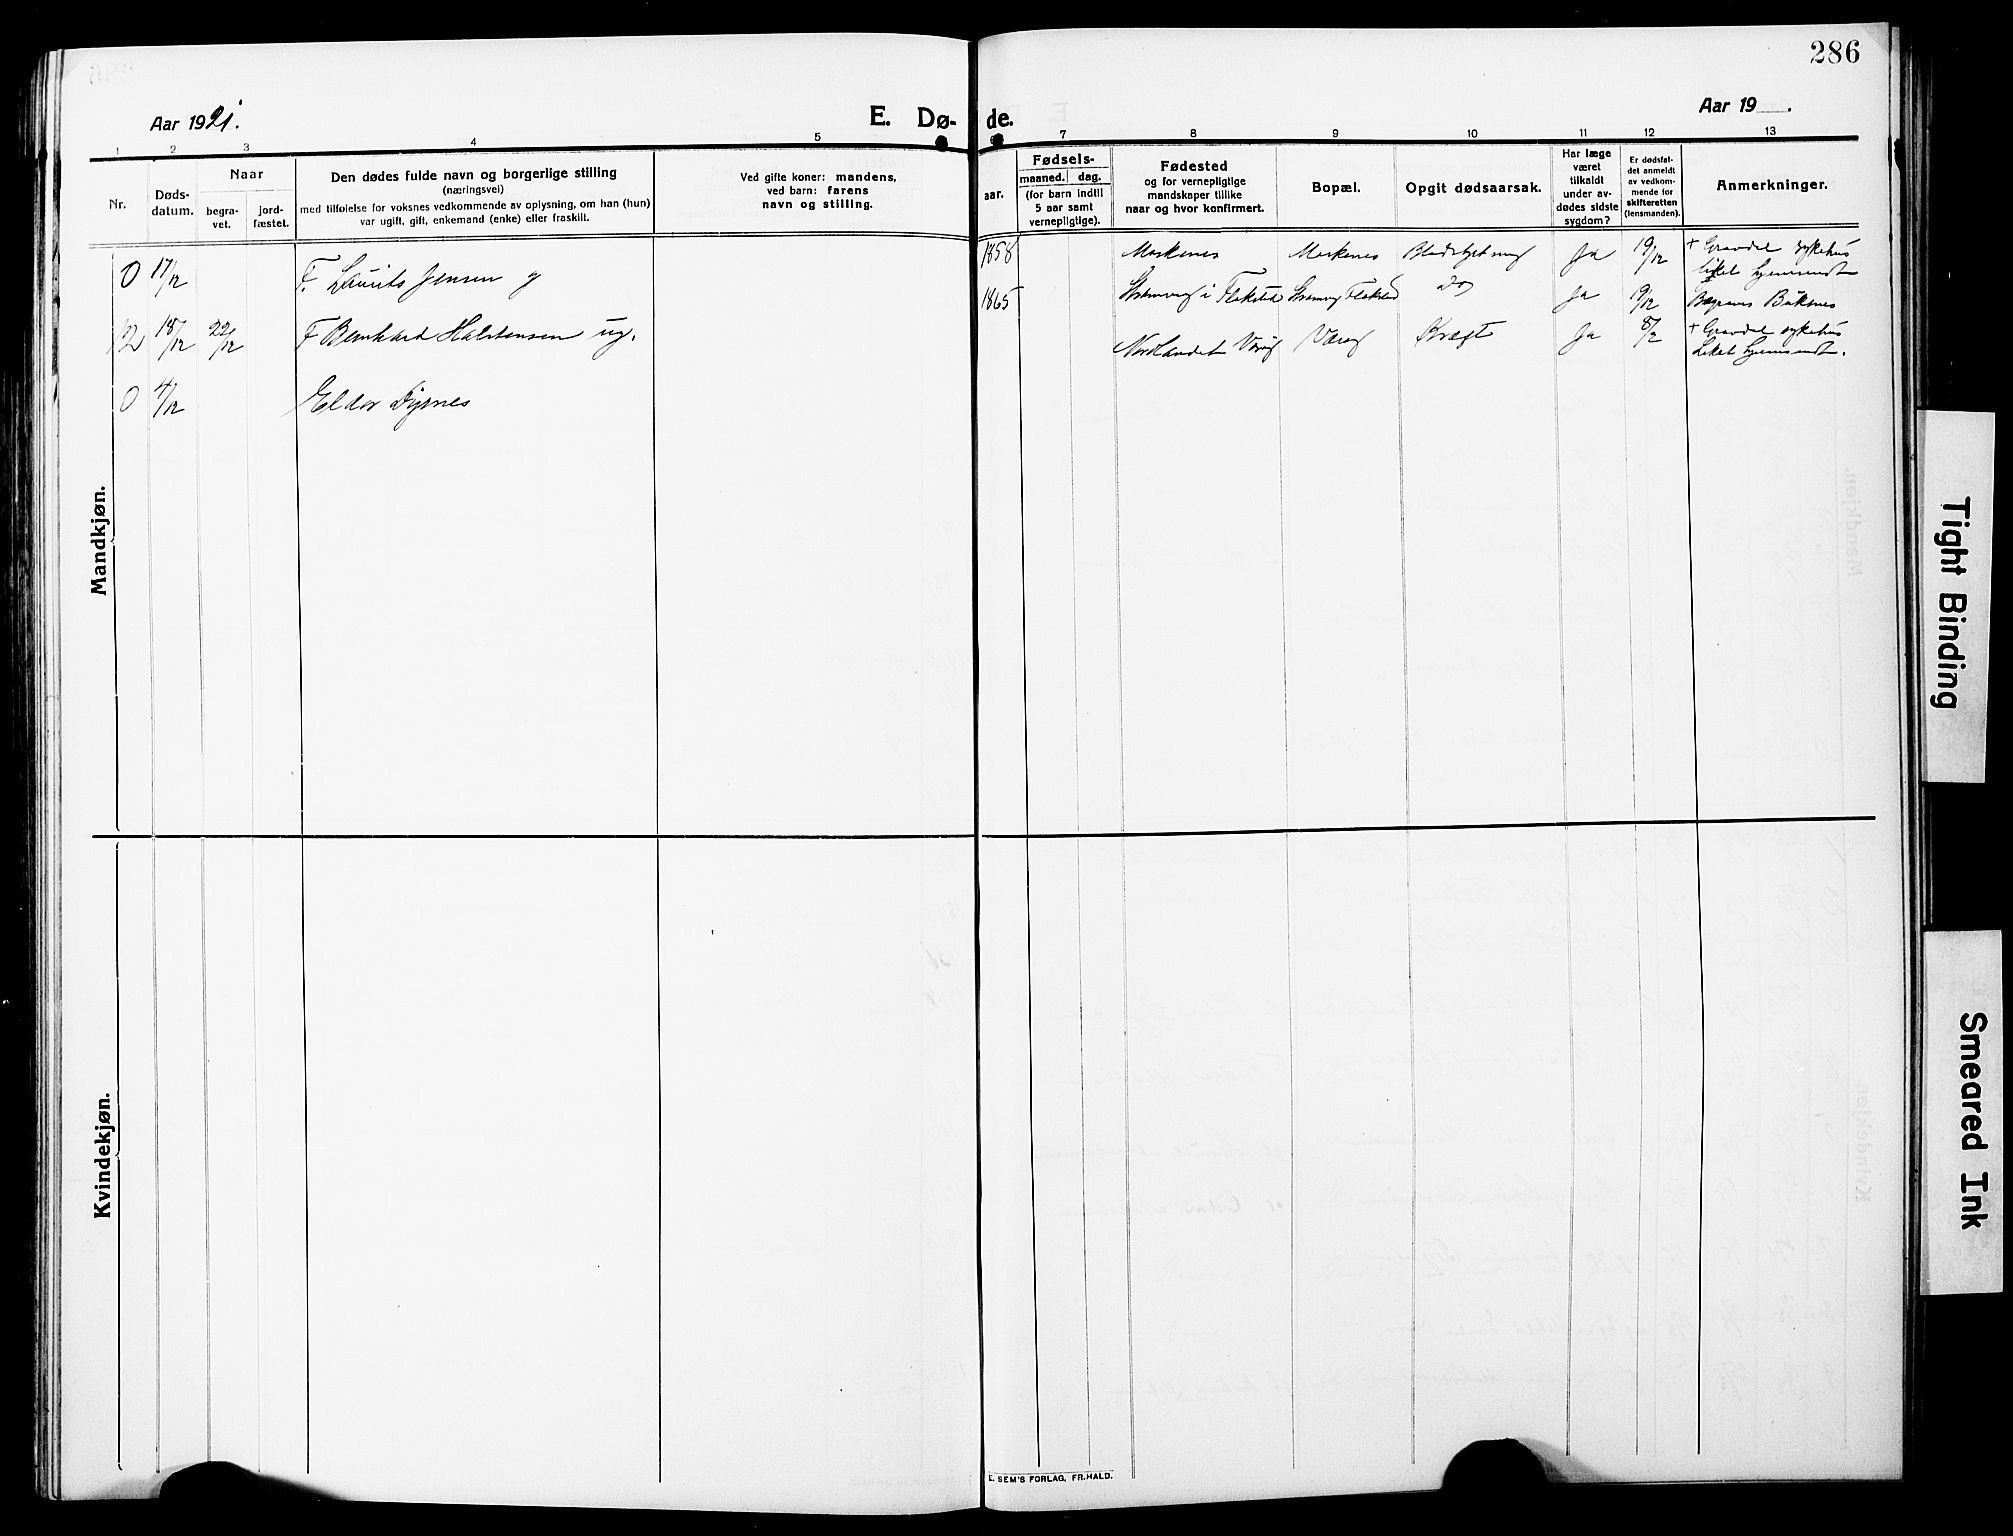 286
Aar 1921.
E. Dø-
de.
Aar 19 .
1 2 3 4 5 7 8 9 10 11 12 13
Nr.
Døds-
datum.
Naar
begra-
vet.
jord-
fæstet.
Den dødes fulde navn og borgerlige stilling
(næringsvei)
med tilføielse for voksnes vedkommende av oplysning, om han (hun)
var ugift, gift, enkemand (enke) eller fraskilt.
Ved gifte koner: mandens,
ved barn: farens
navn og stilling.
aar.
Fødsels-
maaned. dag.
(for barn indtil
5 aar samt
vernepligtige).
Fødested
og for vernepligtige
mandskaper tillike
naar og hvor konfirmert.
Bopæl.
Opgit dødsaarsak.
Har læge
været
tilkaldt
under av-
dødes sidste
sygdom?
Er dødsfal-
det anmeldt
av vedkom-
mende for
skifteretten
(lensmanden).
Anmerkninger.
Mandkjøn.
0 17/12 F. Laurits Jensen g 1858 Moskenes Moskenes Ja 19/12 + Gravdal sykehus
liket hjemsendt
12 18/12 22/12 F Bernhard Halstensen ug. 1865 i Flakstad Flakstad do Ja 19/12 Begraves Buksnes
0 4/12 Eldor Dyrnes Nordlandet Værøy Værøy Kræft Ja 8/2 + Gravdal sykehus
Liket hjemsendt.
Kvindekjøn.
E. SEM'S FORLAG, FR.HALD.
Tight Binding
Smeared Ink